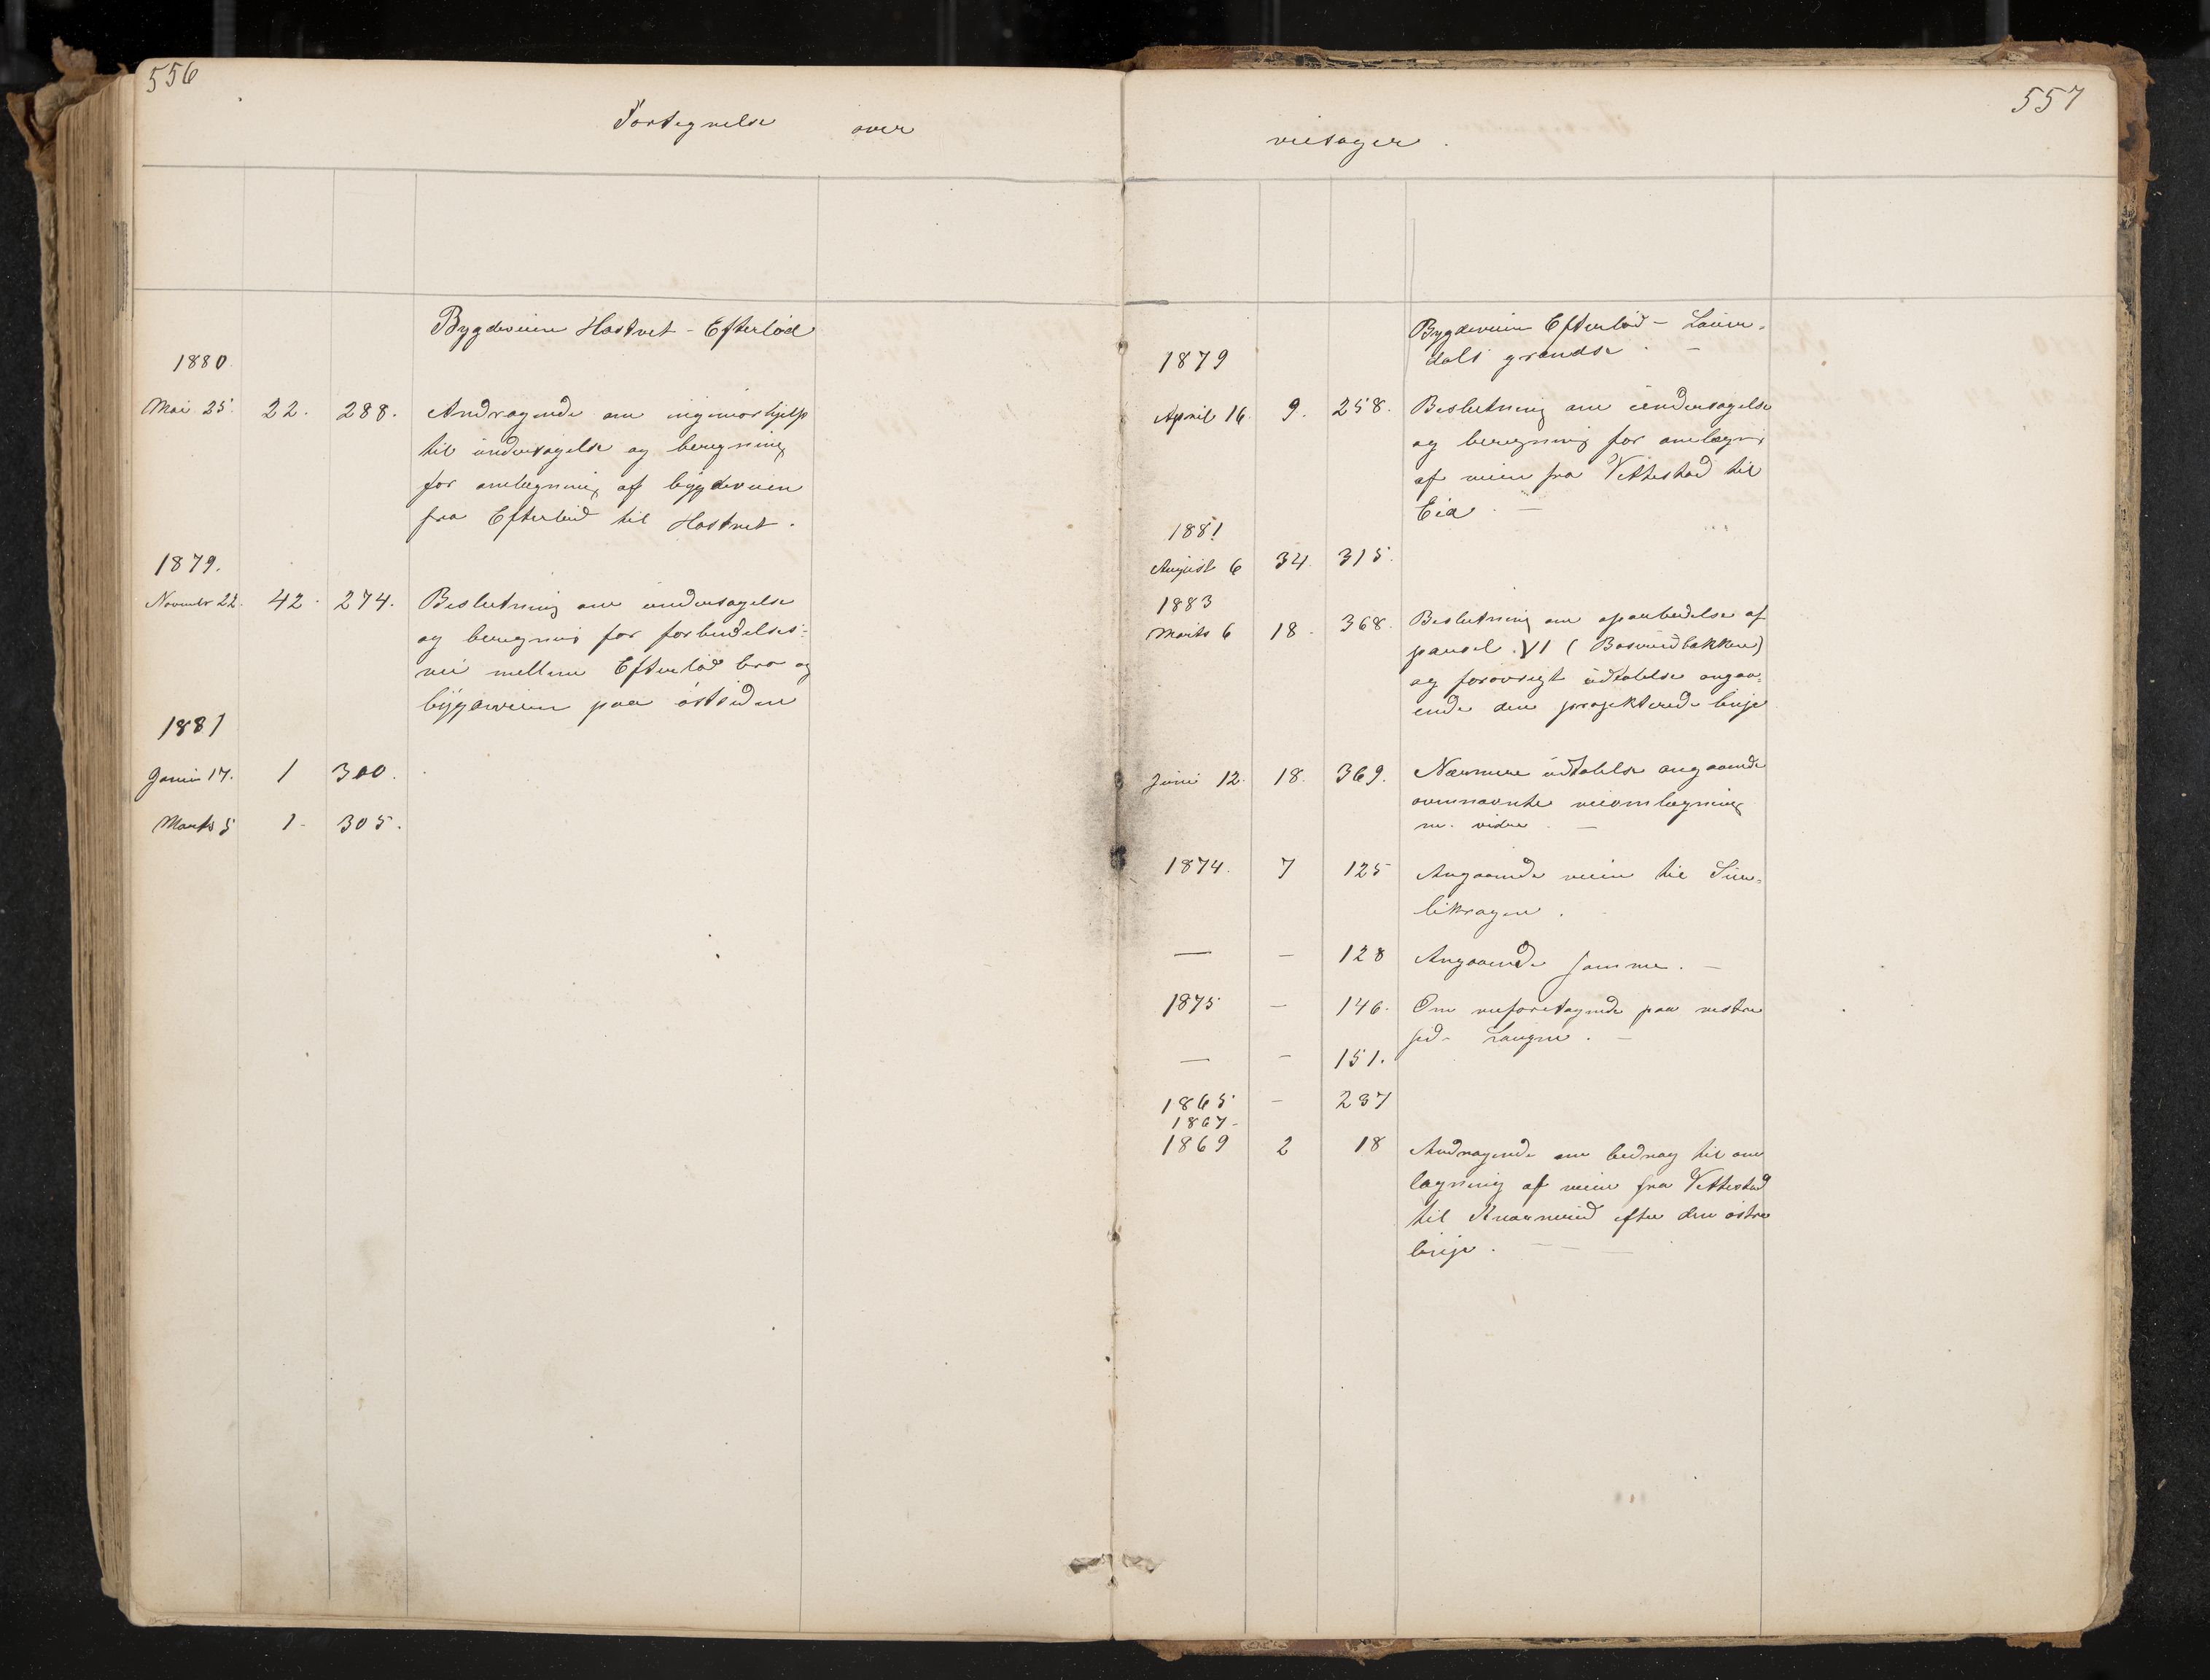 556
Fortegnelse over
Bygdeveien Hostvet - Efterlød
1880
Mai 25. 22. 288. Andragende om ingeniørhjelp
til undersøgelse og beregning
for omlægning af bygdeveien
fra Efterlød til Hostvet.
1879.
Novembr 22. 42. 274. Beslutning om undersøgelse
og beregning for forbindelses=
vei mellem Efterlød bro og
bygdeveien paa østsiden
1881
Januar 17. 1 300.
Marts 5 1. 305.
557
veisager.
Bygdeveien Efterlød - Lauer-
dals grændse. -
1879
April 16. 9. 258. Beslutning om undersøgelse
og beregning for omlægnig
af veien fra Vittestad til
Eia. -
1881
August 6 34. 315.
1883
Marts 6 18. 368. Beslutning om oparbeidelse af
parsel VI (Bosvindbakken)
og forøvrigt udtalelse angaa=
ende den projekterede linje
Juni 12. 18. 369. Nærmere udtalelse angaaende
ovennævnte veiomlægning
m. videre. -
1874. 7 125 Angaaende veien til
- - 128 Angaaende samme. -
1875 - 146. Om veiforetagende paa vestre
sid- Laugen. -
- - 151.
1865 - 237
1867-
1869 2 18 Andragende om bidrag til om
lægning af veien fra Vittestad
til efter den østre
linje. - - -